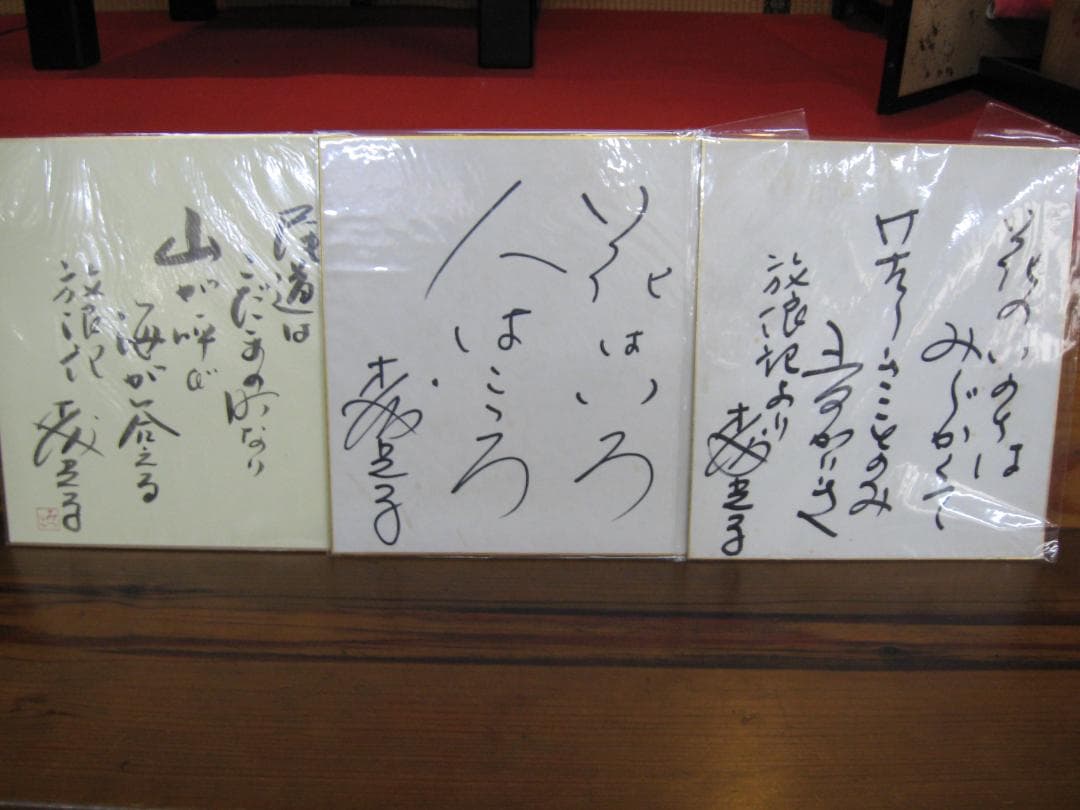 花のいのちは
みじかくて
苦しきことのみ
多かりき
放浪記より
森光子
花はいろ
人はこゝろ
森光子
尾道は
こだまの町なり
山が呼び
海が答える
放浪記
森光子